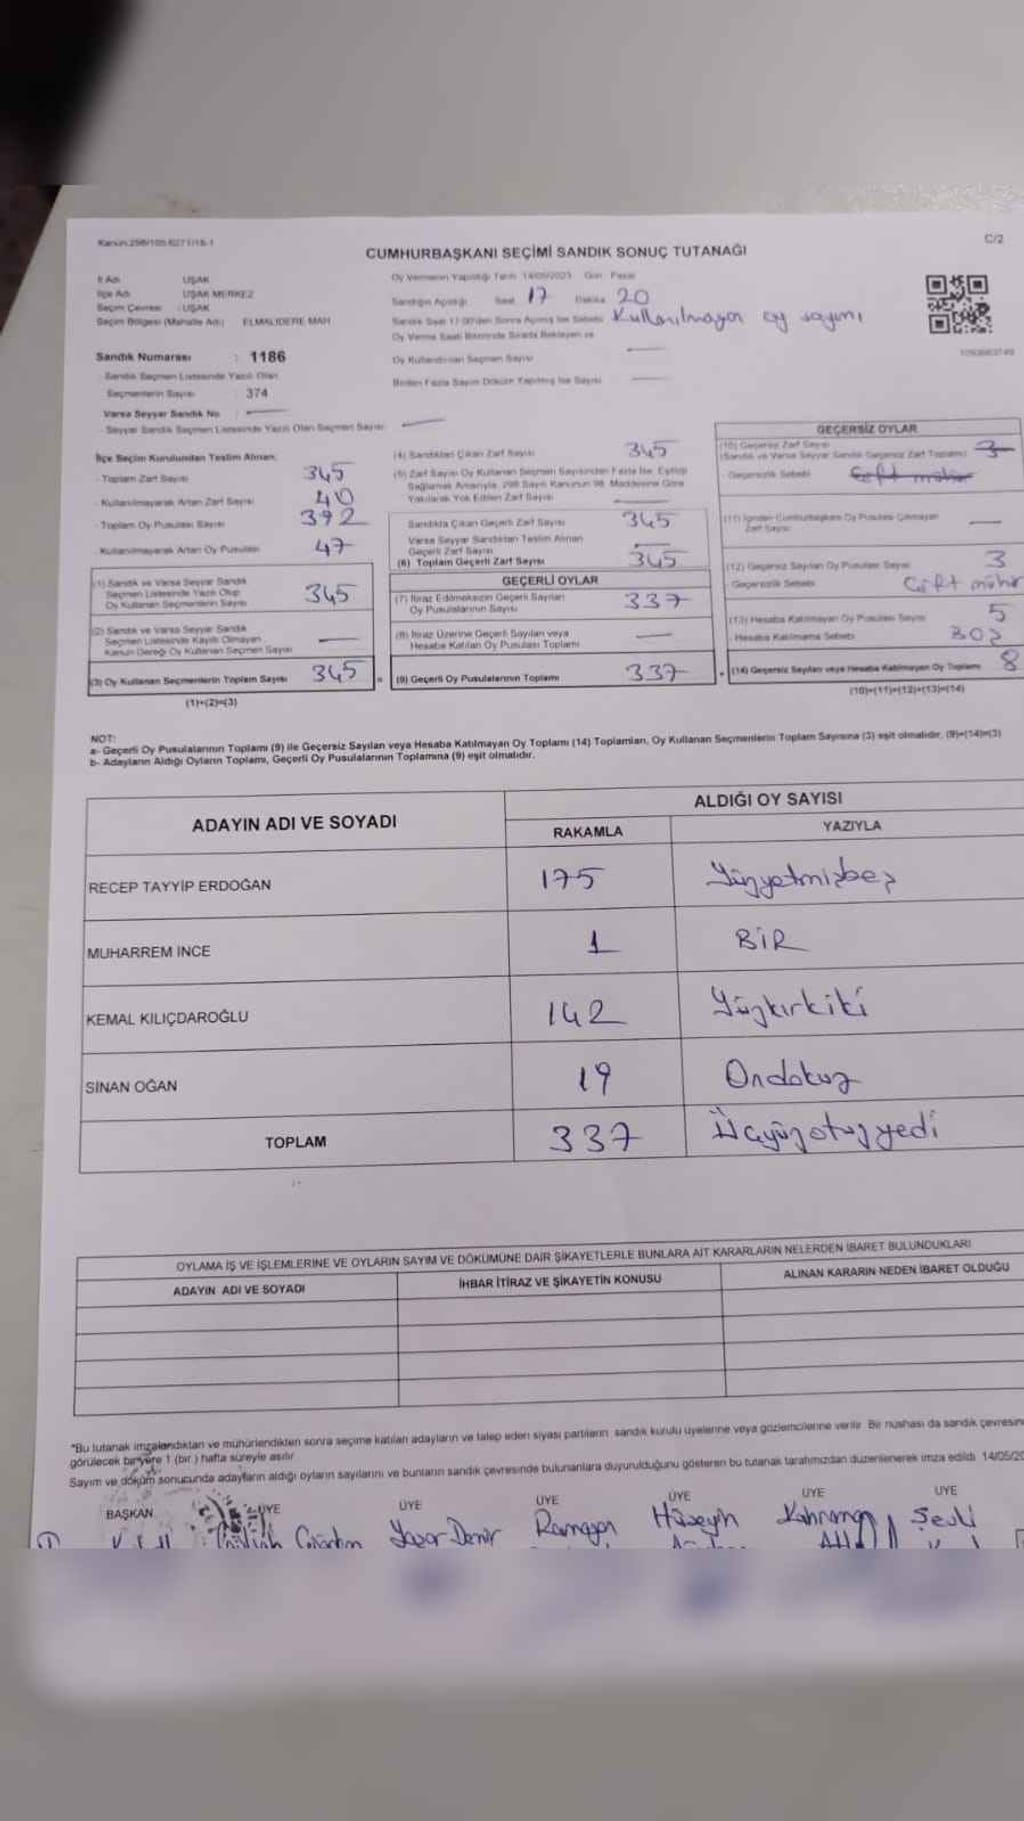 Kanun:298/105
C/2
CUMHURBAŞKANI SEÇİMİ SANDIK SONUÇ TUTANAĞI
İl Adı : UŞAK
İlçe Adı : UŞAK MERKEZ
Seçim Çevresi : UŞAK
Seçim Bölgesi (Mahalle Adı) : ELMALIDERE MAH
Oy Vermenin Yapıldığı Tarih 14/05/2023 Gün Pazar
Sandığın Açıldığı Saat 17 Dakika 20
Sandık Saat 17:00'den Sonra Açılmış İse Sebebi Kullanılmayan oy sayımı
Oy Verme Saati Bitiminde Sırada Bekleyen ve
Oy Kullandırılan Seçmen Sayısı —
Birden Fazla Sayım Döküm Yapılmış İse Sayısı —
Sandık Numarası : 1186
Sandık Seçmen Listesinde Yazılı Olan
Seçmenlerin Sayısı 374
Varsa Seyyar Sandık No : —
- Seyyar Sandık Seçmen Listesinde Yazılı Olan Seçmen Sayısı —
İlçe Seçim Kurulundan Teslim Alınan;
- Toplam Zarf Sayısı 345
- Kullanılmayarak Artan Zarf Sayısı 40
- Toplam Oy Pusulası Sayısı 392
- Kullanılmayarak Artan Oy Pusulası 47
(1) Sandık ve Varsa Seyyar Sandık
Seçmen Listesinde Yazılı Olup
Oy Kullanan Seçmenlerin Sayısı 345
(2) Sandık ve Varsa Seyyar Sandık
Seçmen Listesinde Kayıtlı Olmayan
Kanun Gereği Oy Kullanan Seçmen Sayısı —
(3) Oy Kullanan Seçmenlerin Toplam Sayısı 345
(1)+(2)=(3)
(4) Sandıktan Çıkan Zarf Sayısı 345
(5) Zarf Sayısı Oy Kullanan Seçmen Sayısından Fazla İse, Eşitliği
Sağlamak Amacıyla, 298 Sayılı Kanunun 98. Maddesine Göre
Yakılarak Yok Edilen Zarf Sayısı —
Sandıkta Çıkan Geçerli Zarf Sayısı 345
Varsa Seyyar Sandıktan Teslim Alınan
Geçerli Zarf Sayısı —
(6) Toplam Geçerli Zarf Sayısı 345
GEÇERLİ OYLAR
(7) İtiraz Edilmeksizin Geçerli Sayılan
Oy Pusulalarının Sayısı 337
(8) İtiraz Üzerine Geçerli Sayılan veya
Hesaba Katılan Oy Pusulası Toplamı —
(9) Geçerli Oy Pusulalarının Toplamı 337
GEÇERSİZ OYLAR
(10) Geçersiz Zarf Sayısı
(Sandık ve Varsa Seyyar Sandık Geçersiz Zarf Toplamı) 3
- Geçersizlik Sebebi Çift mühür
(11) İçinden Cumhurbaşkanı Oy Pusulası Çıkmayan
Zarf Sayısı —
(12) Geçersiz Sayılan Oy Pusulası Sayısı 3
- Geçersizlik Sebebi Çift mühür
(13) Hesaba Katılmayan Oy Pusulası Sayısı 5
- Hesaba Katılmama Sebebi BOŞ
(14) Geçersiz Sayılan veya Hesaba Katılmayan Oy Toplamı 8
(10)+(11)+(12)+(13)=(14)
NOT:
a- Geçerli Oy Pusulalarının Toplamı (9) ile Geçersiz Sayılan veya Hesaba Katılmayan Oy Toplamı (14) Toplamları, Oy Kullanan Seçmenlerin Toplam Sayısına (3) eşit olmalıdır. (9)+(14)=(3)
b- Adayların Aldığı Oyların Toplamı, Geçerli Oy Pusulalarının Toplamına (9) eşit olmalıdır.
ADAYIN ADI VE SOYADI
ALDIĞI OY SAYISI
RAKAMLA YAZIYLA
RECEP TAYYİP ERDOĞAN 175 Yüzyetmişbeş
MUHARREM İNCE 1 BİR
KEMAL KILIÇDAROĞLU 142 Yüzkırkiki
SİNAN OĞAN 19 Ondokuz
TOPLAM 337 Üçyüzotuzyedi
OYLAMA İŞ VE İŞLEMLERİNE VE OYLARIN SAYIM VE DÖKÜMÜNE DAİR ŞİKAYETLERLE BUNLARA AİT KARARLARIN NELERDEN İBARET BULUNDUKLARI
ADAYIN ADI VE SOYADI İHBAR İTİRAZ VE ŞİKAYETİN KONUSU ALINAN KARARIN NEDEN İBARET OLDUĞU
*Bu tutanak imzalandıktan ve mühürlendikten sonra seçime katılan adayların ve talep eden siyasi partilerin sandık kurulu üyelerine veya gözlemcilerine verilir. Bir nüshası da sandık çevresin
görülecek bir yere 1 (bir) hafta süreyle asılır.
Sayım ve döküm sonucunda adayların aldığı oyların sayılarını ve bunların sandık çevresinde bulunanlara duyurulduğunu gösteren bu tutanak tarafımızdan düzenlenerek imza edildi. 14/05/20
BAŞKAN ÜYE ÜYE ÜYE ÜYE ÜYE ÜYE
Yaşar Demir Ramazan Hüseyin Kahraman